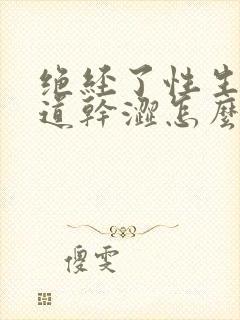 绝经了性生
道幹澀怎麽
傻雯